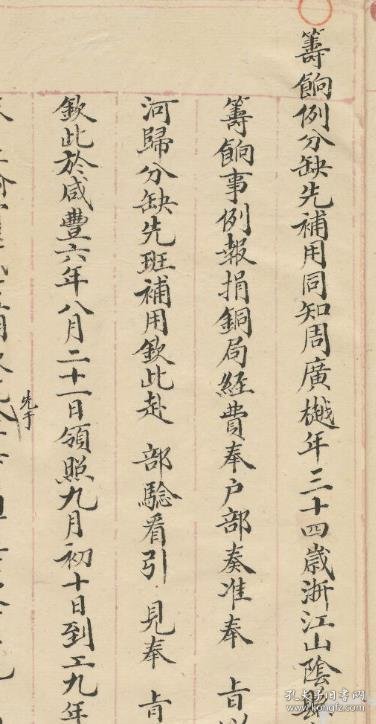 籌餉例分缺先補用同知周廣樾年三十四歲浙江山陰
籌餉事例報捐銅局經費奉户部奏准奉 旨以
河歸分缺先班補用欽此赴 部驗看引 見奉 旨
欽此於咸豐六年八月二十一日領照九月初十日到工九年
先于
孔夫子旧书网